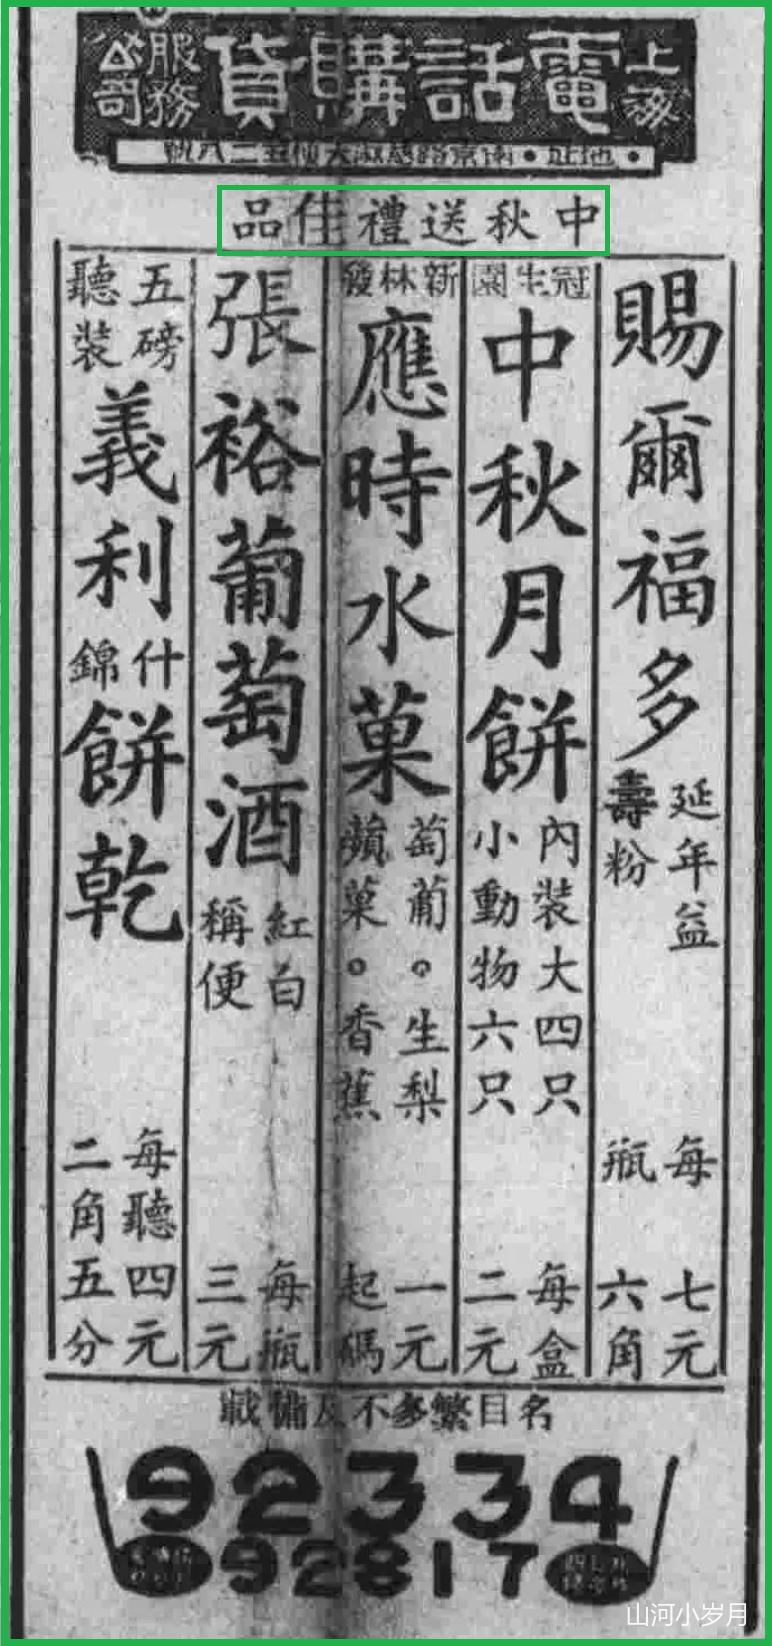 上海
電話購貨
服務公司
中秋送禮佳品
賜爾福多
延年益
壽粉
每
瓶
七元
六角
冠生園
中秋月餅
內裝大四只
小動物六只
每盒
二元
新林發
應時水菓
萄葡。生梨
蘋菓。香蕉
一元
起碼
張裕葡萄酒
紅白
稱便
每瓶
三元
五磅
聽裝
義利
什
錦
餅乾
每聽四元
二角五分
名目繁多不及備載
92334
92817
山河小岁月